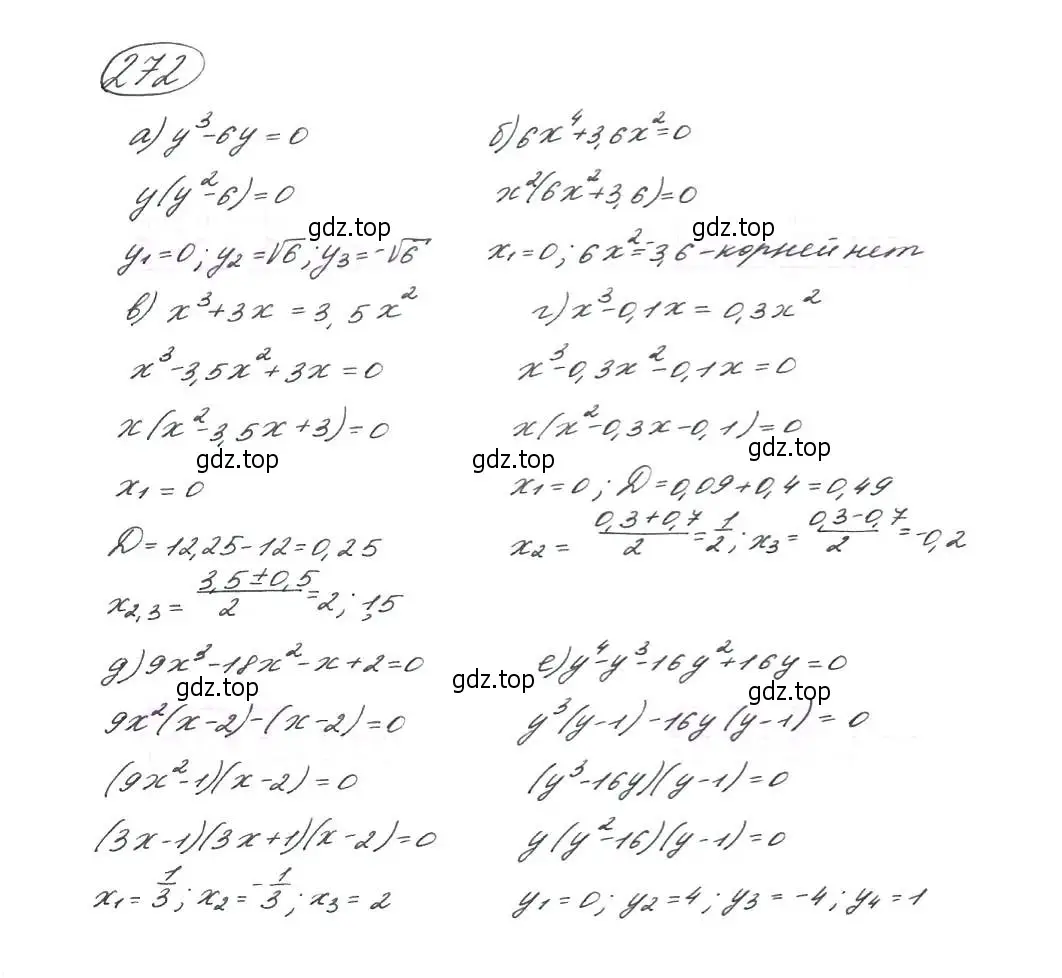 272
а) y³-6y=0
y(y²-6)=0
y₁=0; y₂=√6; y₃=-√6
б) 6x⁴+3,6x²=0
x²(6x²+3,6)=0
x₁=0; 6x²=-3,6 - корней нет
в) x³+3x=3,5x²
x³-3,5x²+3x=0
x(x²-3,5x+3)=0
x₁=0
Д=12,25-12=0,25
x₂,₃=(3,5±0,5)/2=2; 1,5
г) x³-0,1x=0,3x²
x³-0,3x²-0,1x=0
x(x²-0,3x-0,1)=0
x₁=0; Д=0,09+0,4=0,49
x₂=(0,3+0,7)/2=1/2; x₃=(0,3-0,7)/2=-0,2
д) 9x³-18x²-x+2=0
9x²(x-2)-(x-2)=0
(9x²-1)(x-2)=0
(3x-1)(3x+1)(x-2)=0
x₁=1/3; x₂=-1/3; x₃=2
е) y⁴-y³-16y²+16y=0
y³(y-1)-16y(y-1)=0
(y³-16y)(y-1)=0
y(y²-16)(y-1)=0
y₁=0; y₂=4; y₃=-4; y₄=1
gdz.top
gdz.top
gdz.top
gdz.top
gdz.top
gdz.top
gdz.top
gdz.top